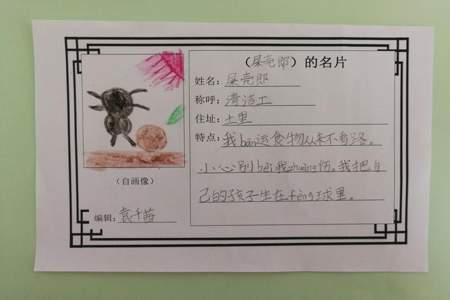 （屎壳郎）的名片
姓名：屎壳郎
称呼：清洁工
住址：土里
特点：我bān运食物从来不含糊。
小心别bèi我zhuàng伤。我把自
己的孩子生在fèng球里。
（自画像）
编辑：袁千茹